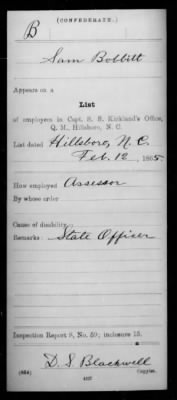 (CONFEDERATE.)
B
Sam Bobbitt
Appears on a
List
of employees in Capt. S. S. Kirkland's Office,
Q. M., Hillsboro, N. C.
List dated Hillsboro, N. C.
Feb. 12, 1865
How employed Assessor
By whose order
Cause of disability
Remarks: State Officer
Inspection Report 8, No. 59; inclosure 15.
D. S. Blackwell
(664) Copyist.
4327